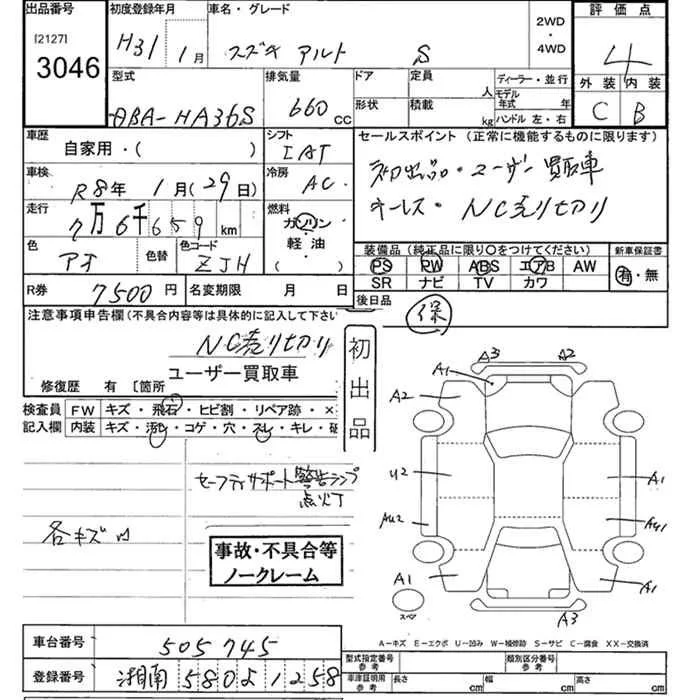 出品番号
[2127]
3046
初度登録年月
H31年 1月
車名・グレード
スズキ アルト S
2WD
・
4WD
評価点
4
外装 内装
C B
型式
DBA-HA36S
排気量
660 cc
ドア
定員
人
形状
積載
kg
ディーラー・並行
モデル
年式 年
ハンドル 左・右
車歴
自家用・( )
シフト
IAT
セールスポイント (正常に機能するものに限ります)
初出品・ユーザー買取車
キーレス・NC売り切り
車検
R8年 1月(29日)
冷房
AC
走行
7万6千659 km
燃料
ガソリン
・
軽油
( )
色
アオ
色替
色コード
ZJH
装備品 (純正品に限り○をつけてください)
PS PW ABS エアB AW
SR ナビ TV カワ
新車保証書
有・無
R券 7500円
名変期限 月 日
後日品
保
注意事項申告欄(不具合内容等は具体的に記入して下さい
NC売り切り
ユーザー買取車
修復歴 有 〔箇所
初出品
検査員
記入欄
FW キズ・飛石・ヒビ割・リペア跡・×
内装 キズ・汚レ・コゲ・穴・スレ・キレ・破
セーフティサポート警告ランプ
点灯
各キズ凹
事故・不具合等
ノークレーム
A1 A3 A2
A2
U2 A1
AU2 AU1
A1 A1
スペア
A3
A-キズ E-エクボ U-凹み W-補修跡 S-サビ C-腐食 XX-交換済
車台番号 505745
登録番号 湘南 580 よ 1258
型式指定番号
参考
類別区分番号
参考
車庫証明用
参考
長さ cm 幅 cm 高さ cm